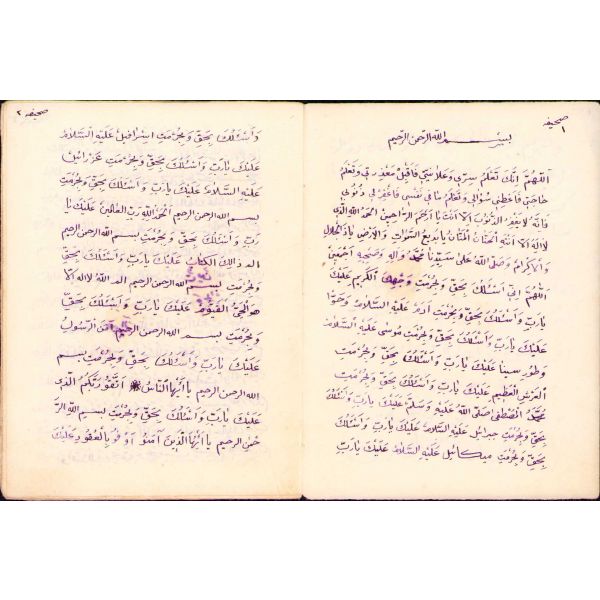 صحيفه ١
بسم الله الرحمن الرحيم
اللهم انك تعلم سرى وعلانيتى فاقبل معذرتي وتعلم
حاجتى فاعطنى سؤالى وتعلم ما فى نفسى فاغفر لى ذنوبى
فانه لا يغفر الذنوب الا انت يا ارحم الراحمين الحمد لله الذى
لا اله الا انت يا بديع السموات والارض ياذالجلال
والاكرام وصلى الله على سيدنا محمد واله وصحبه اجمعين
اللهم انى اسئلك بحق وبحرمت وجهك الكريم عليك
يارب واسئلك بحق وبحرمت ادم عليه السلام وحوا
عليك يارب واسئلك بحق وبحرمت موسى عليه السلام
وطور سينا عليك يارب واسئلك بحق وبحرمت
العرش العظيم عليك يارب واسئلك بحق وبحرمت
محمد المصطفى صلى الله عليه وسلم عليك يارب واسئلك
بحق وبحرمت جبرائيل عليه السلام عليك يارب واسئلك
بحق وبحرمت ميكائيل عليه السلام عليك يارب
صحيفه ٢
واسئلك بحق وبحرمت اسرافيل عليه السلام
عليك يارب واسئلك بحق وبحرمت عزرائيل
عليه السلام عليك يارب واسئلك بحق وبحرمت
بسم الله الرحمن الرحيم الحمد لله رب العالمين عليك يا
رب واسئلك بحق وبحرمت بسم الله الرحمن الرحيم
الم ذالك الكتاب عليك يارب واسئلك بحق
وبحرمت بسم الله الرحمن الرحيم الم الله لا اله الا
هو الحى القيوم عليك يارب واسئلك بحق
وبحرمت بسم الله الرحمن الرحيم امن الرسول
عليك يارب واسئلك بحق وبحرمت بسم
الله الرحمن الرحيم يا ايها الناس اتقوا ربكم الذى
عليك يارب واسئلك بحق وبحرمت بسم الله الر
حمن الرحيم يا ايها الذين آمنو اوفو بالعقود عليك